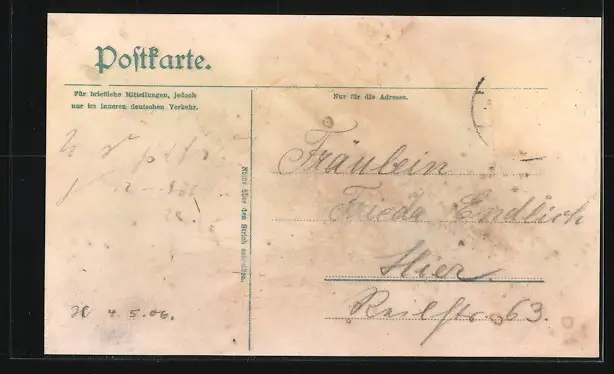 Postkarte.
Für briefliche Mitteilungen, jedoch
nur im inneren deutschen Verkehr.
Nur für die Adresse.
Nicht über den Strich schreiben.
Fräulein
Frieda Endlich
Hier
Railstr. 63.
4.5.06.